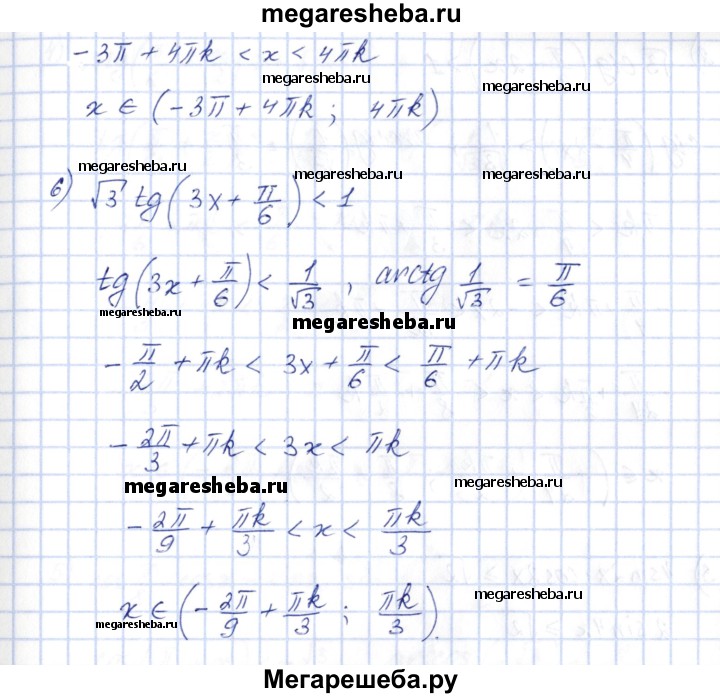 megaresheba.ru
-3π + 4πk < x < 4πk
megaresheba.ru
megaresheba.ru
x ∈ (-3π + 4πk ; 4πk)
megaresheba.ru
megaresheba.ru
6) √3 tg(3x + π/6) < 1
tg(3x + π/6) < 1/√3 , arctg 1/√3 = π/6
megaresheba.ru
megaresheba.ru
-π/2 + πk < 3x + π/6 < π/6 + πk
-2π/3 + πk < 3x < πk
megaresheba.ru
megaresheba.ru
-2π/9 + πk/3 < x < πk/3
megaresheba.ru
x ∈ (-2π/9 + πk/3 ; πk/3).
megaresheba.ru
Мегарешеба.ру